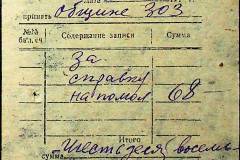 принять общине 303
№№ бал. сч. Содержание записи Сумма
За
справки
на помол 68
Итого
сумма Шестьдесят восемь